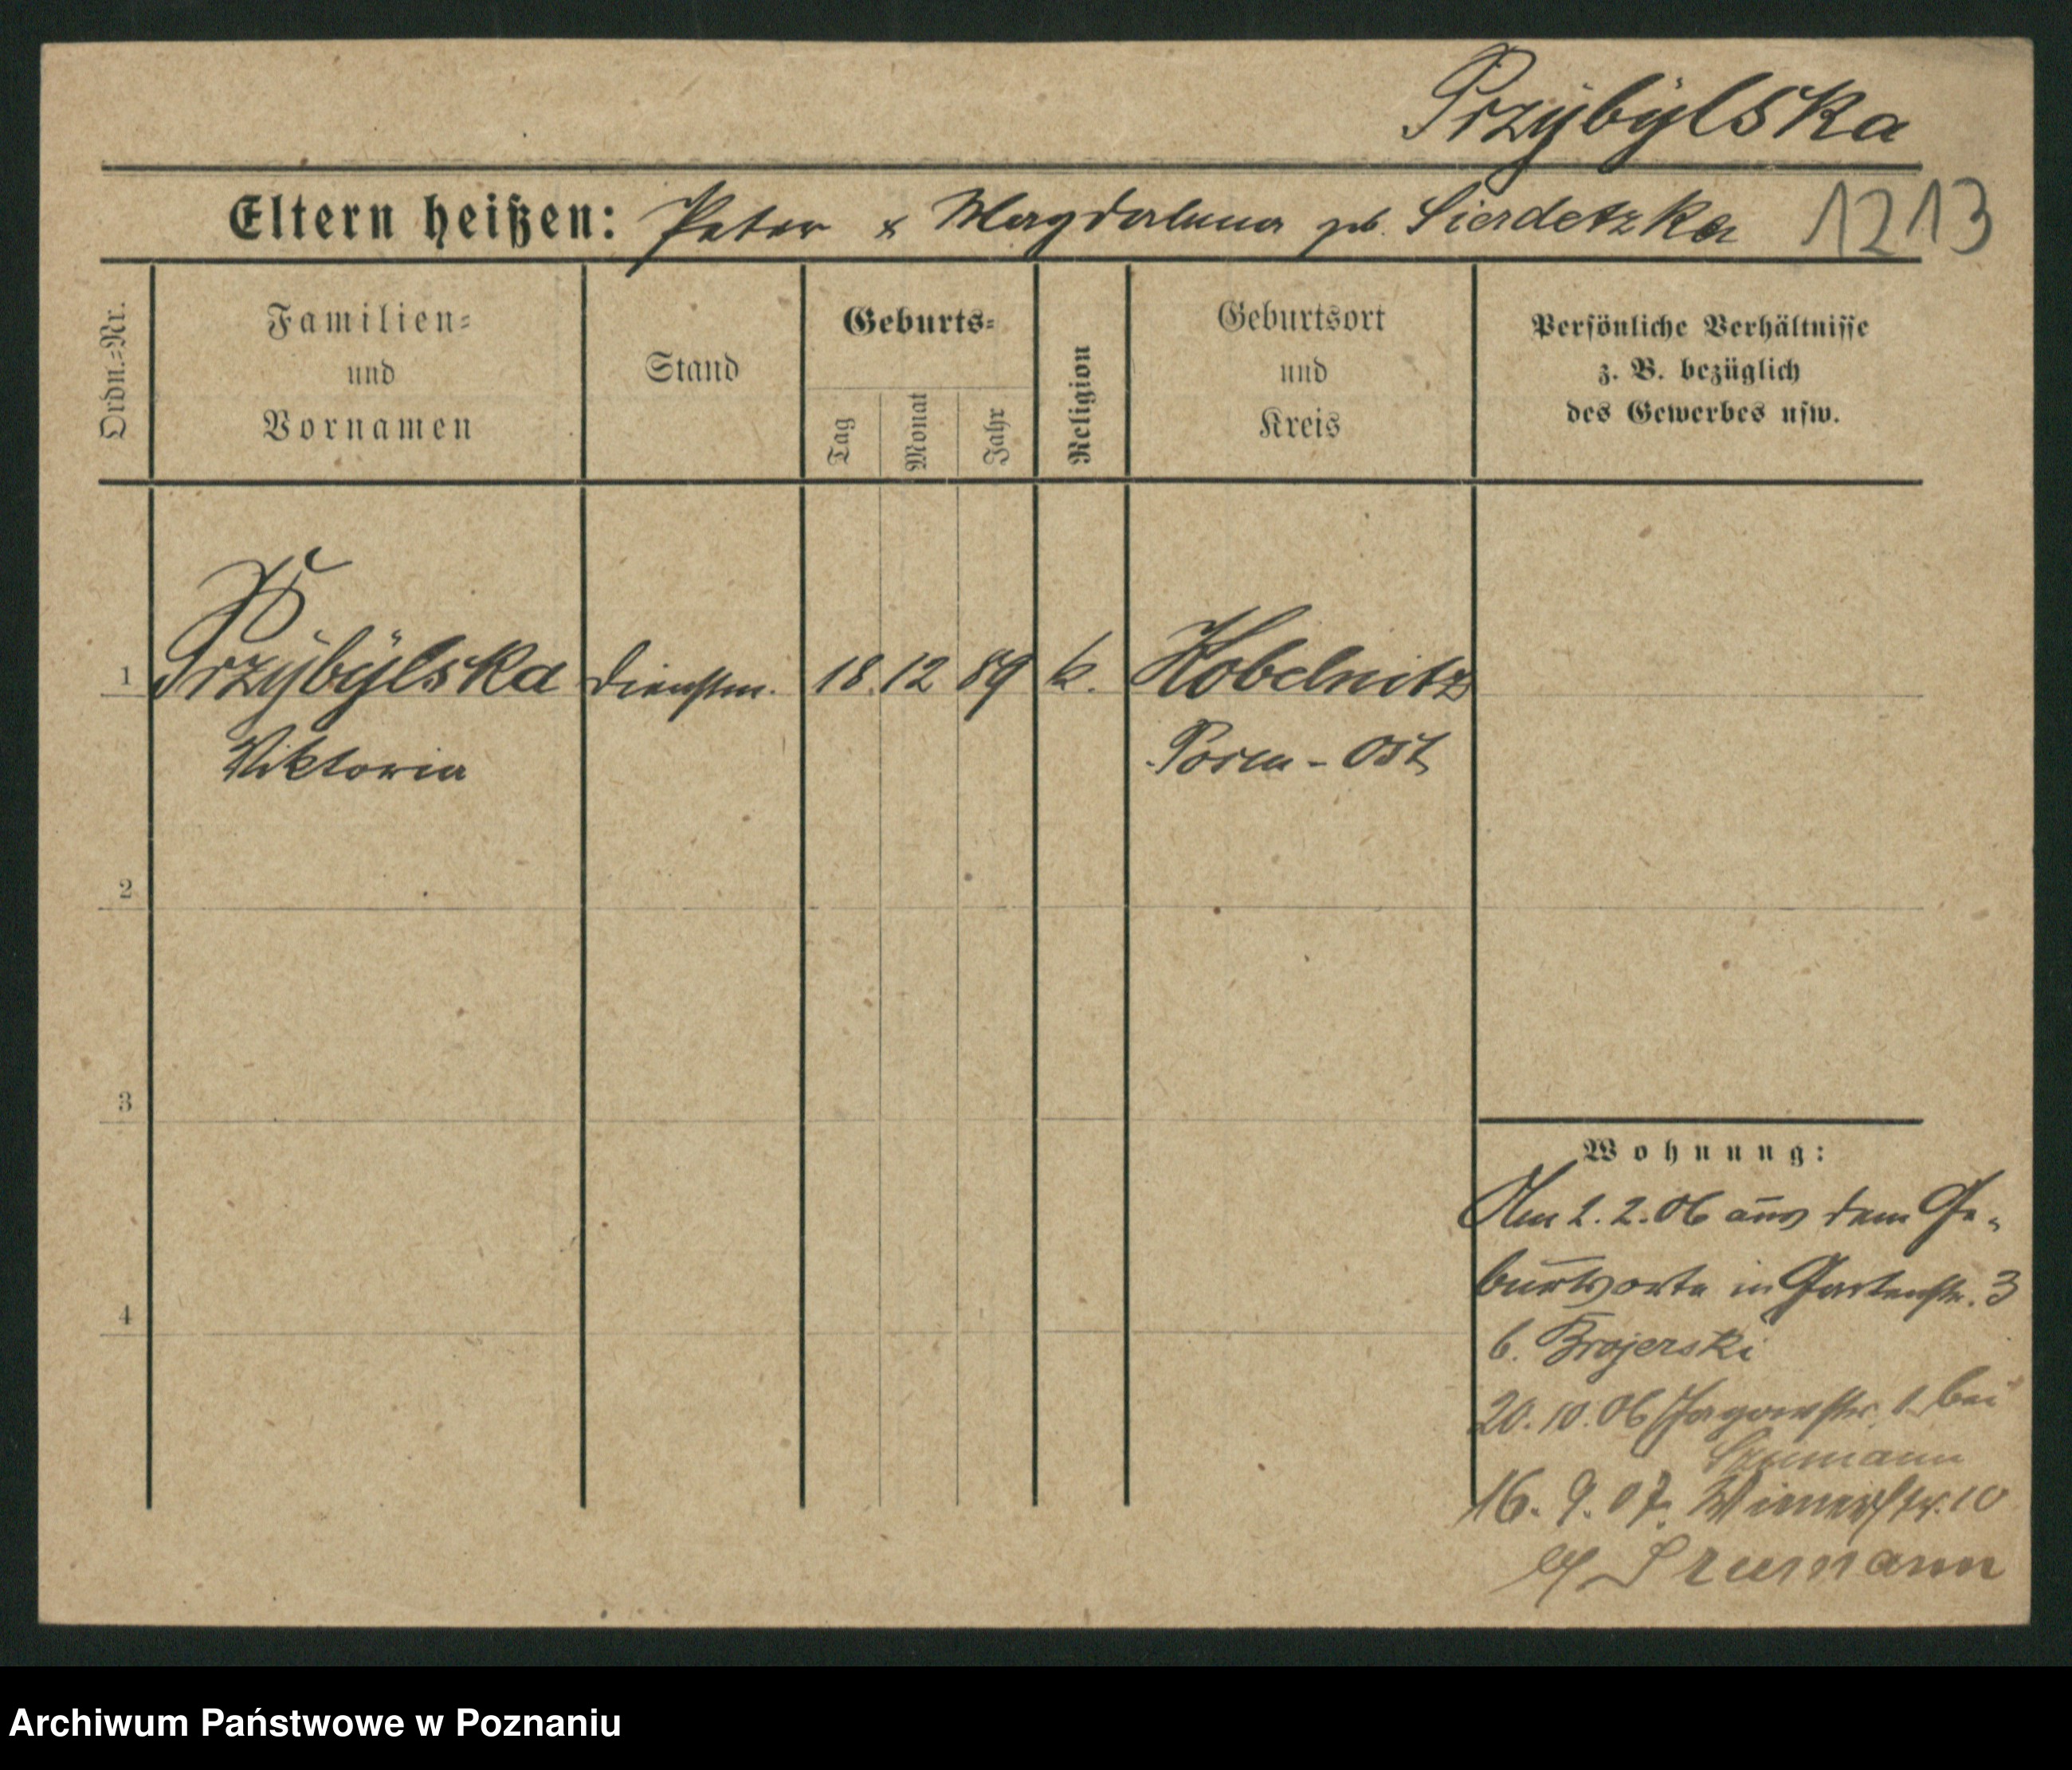 Przybylska
Eltern heißen: Peter & Magdalena geb. Sierdetzka 1213
Ordn.-Nr.
Familien-
und
Vornamen
Stand
Geburts-
Tag
Monat
Jahr
Religion
Geburtsort
und
Kreis
Persönliche Verhältnisse
z. B. bezüglich
des Gewerbes usw.
1 Przybylska Dienstm. 18. 12 89 k. Kobelnitz
Viktoria Posen-Ost
2
3
4
Wohnung:
Am 2. 2. 06 aus dem Ge-
burtsorte in Gartenstr. 3
b. Brojerski
20. 10. 06 Jagowstr. 1 bei
Szumann
16. 9. 07. Wienerstr. 10
b/ Szumann
Archiwum Państwowe w Poznaniu